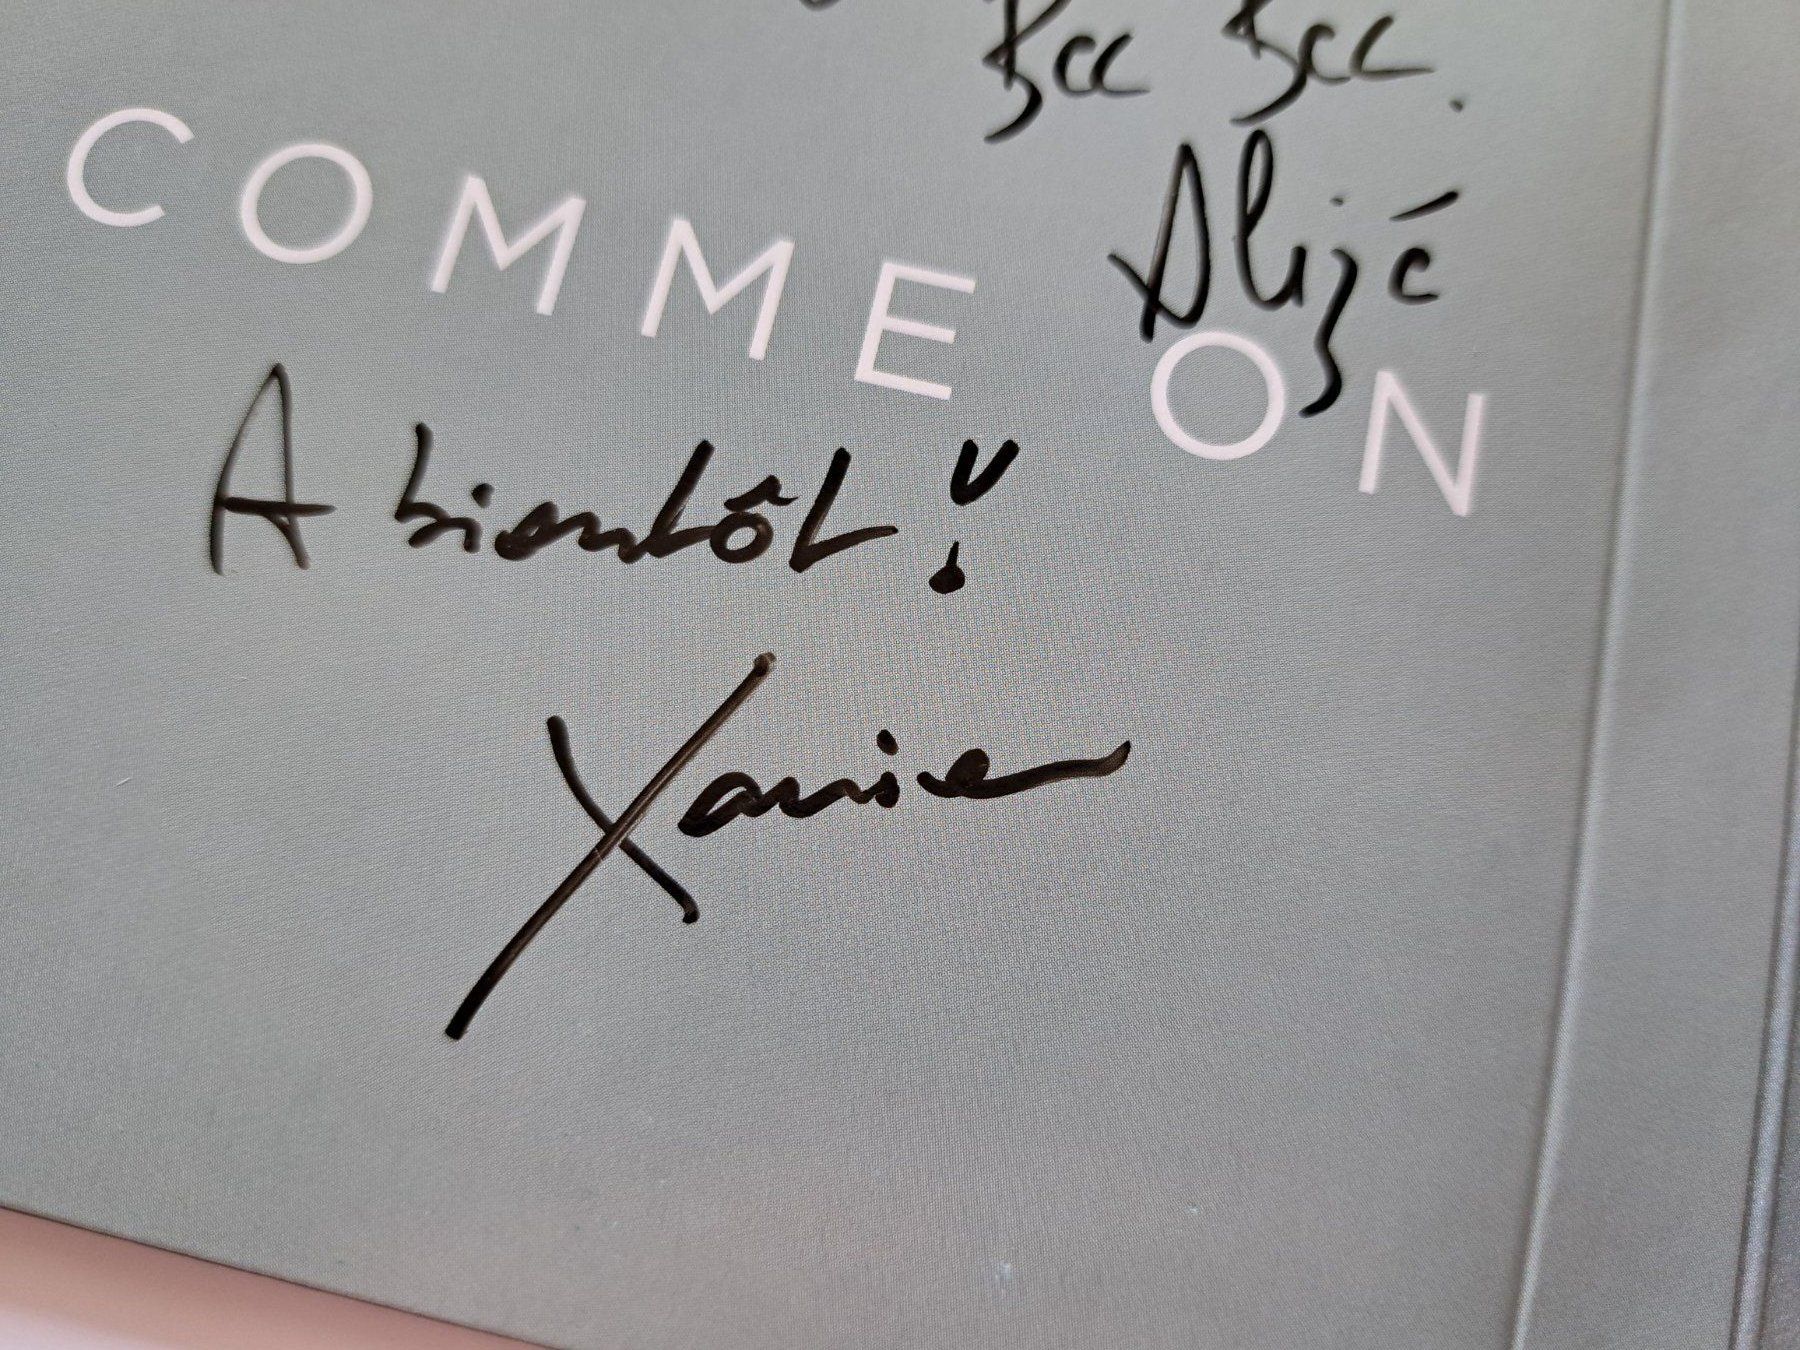 Bcc Bcc.
Alizé
COMME ON
A bientôt !
Xavier